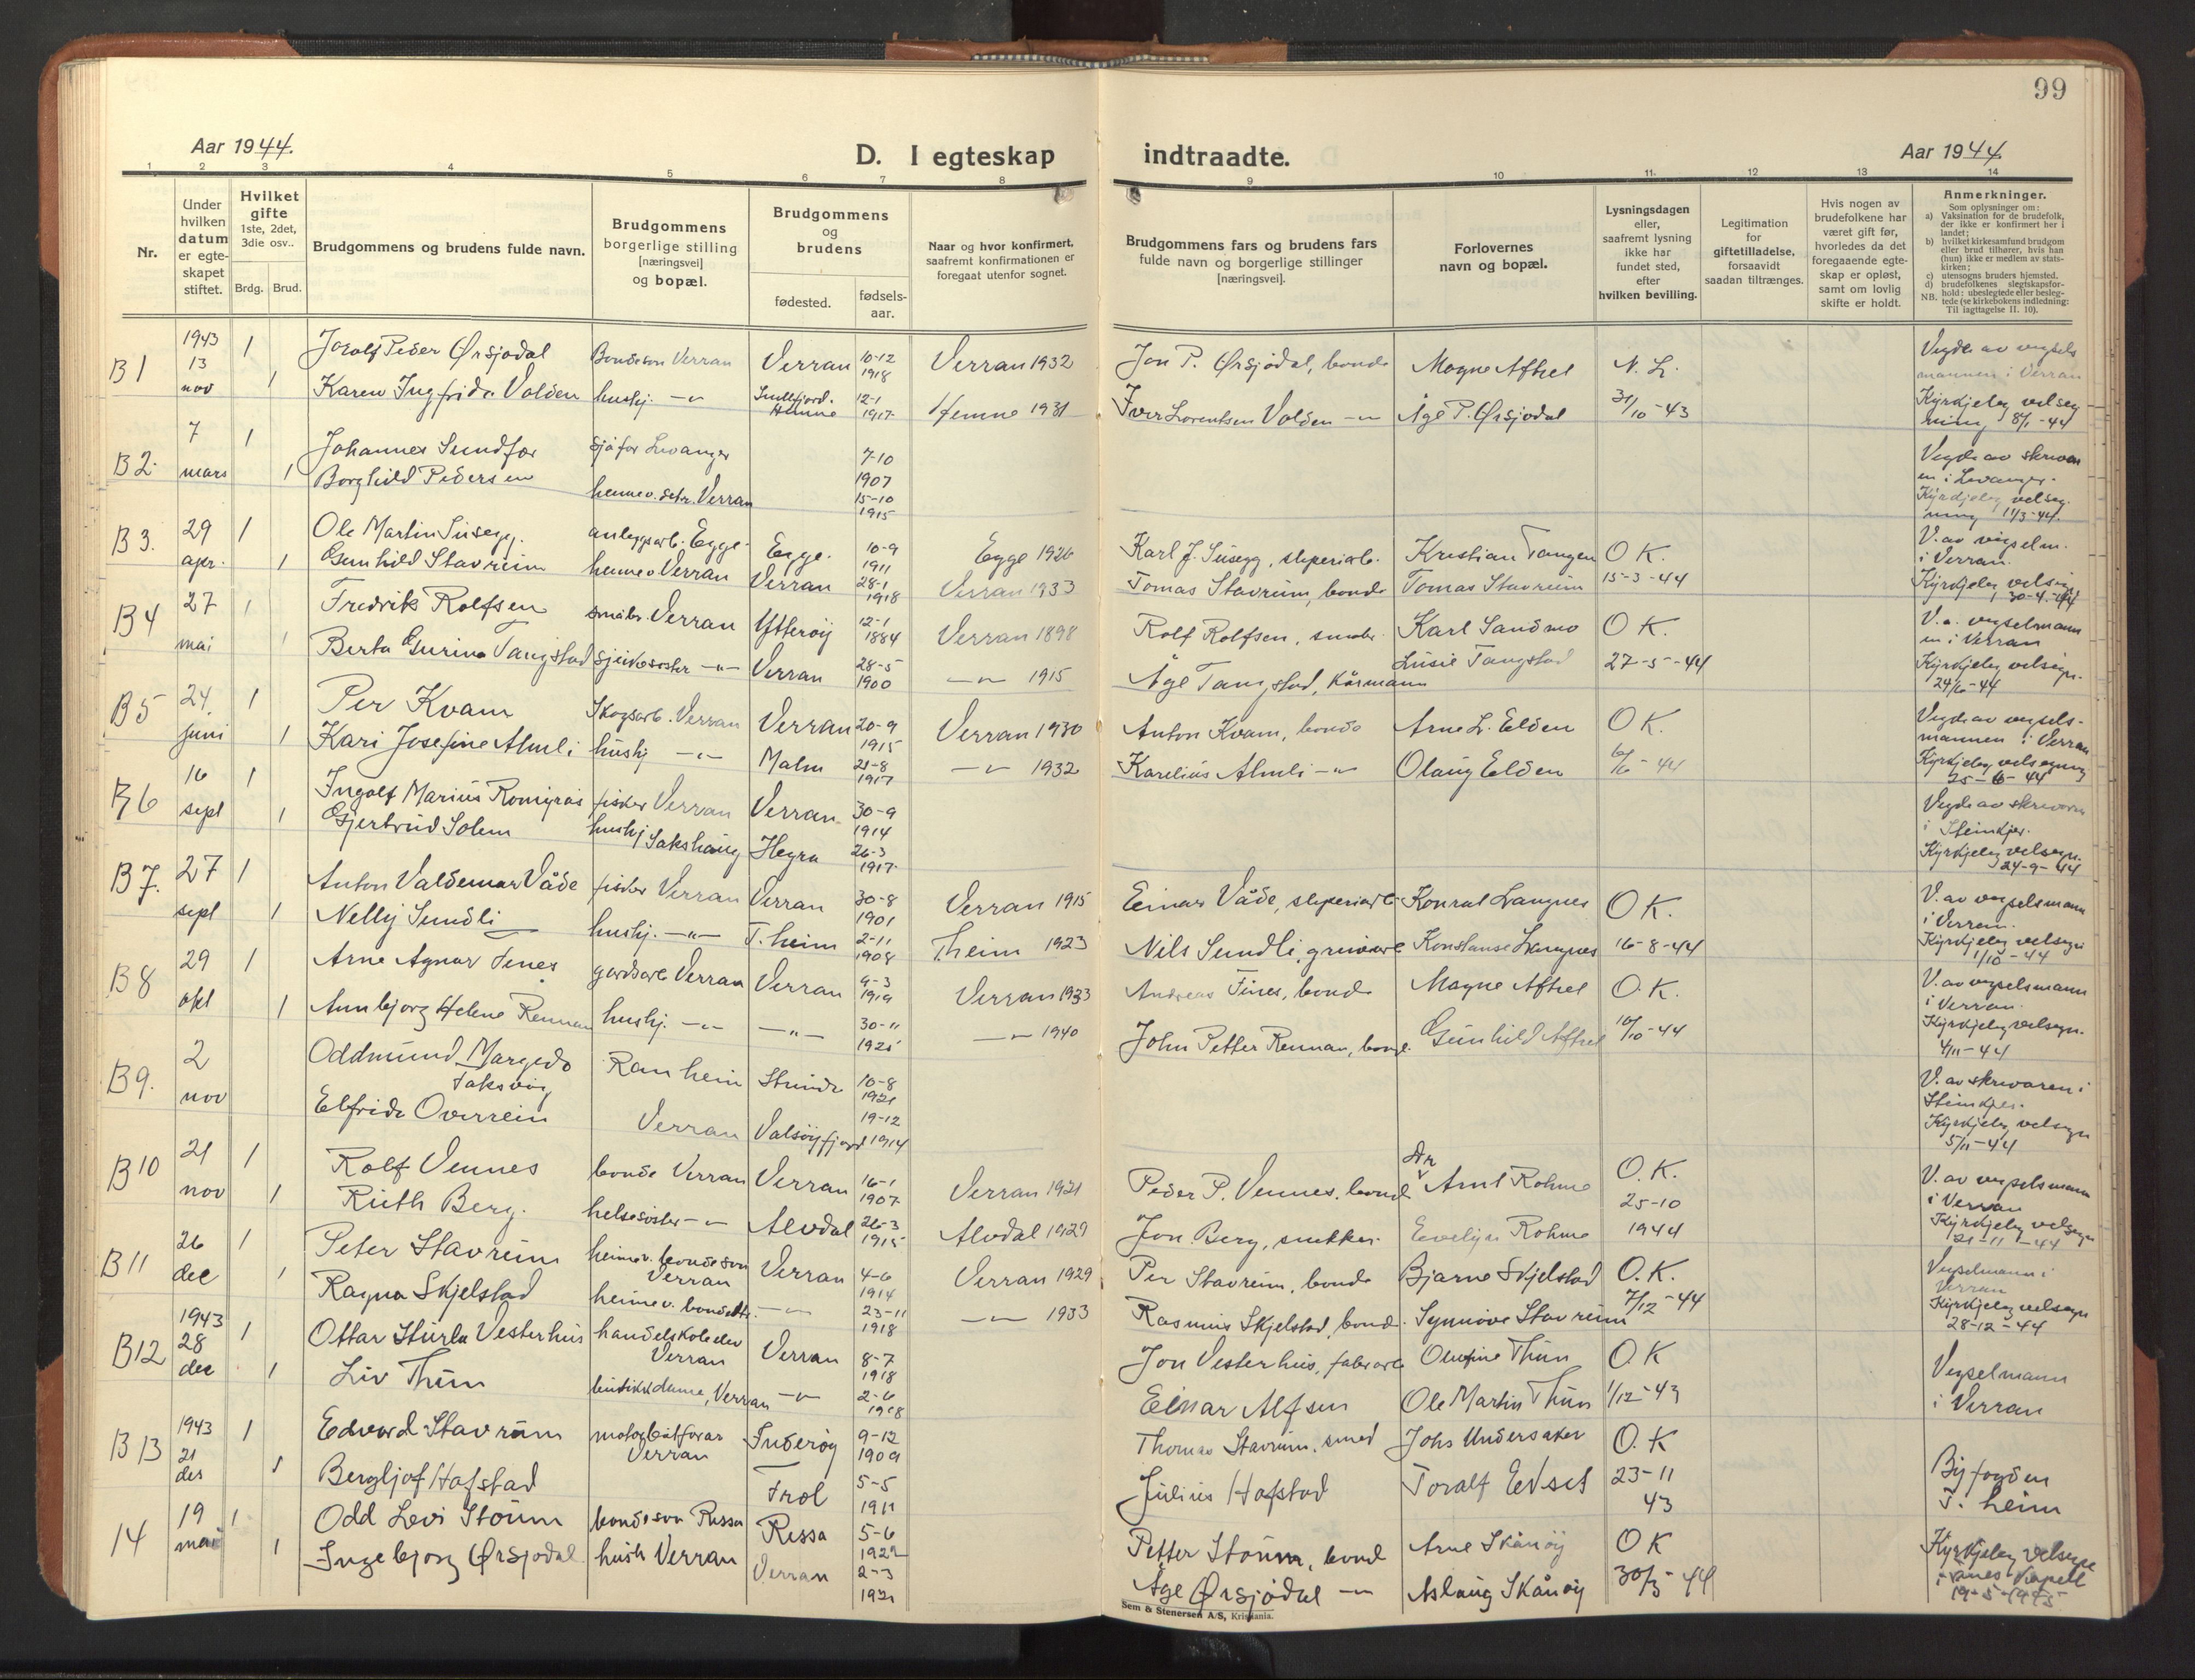 99
Aar 1944.
D. I egteskap indtraadte.
Aar 1944
1 2 3 4 5 6 7 8 9 10 11 12 13 14
Nr.
Under hvilken datum er egteskapet stiftet.
Hvilket gifte 1ste, 2det, 3die osv..
Brdg. Brud.
Brudgommens og brudens fulde navn.
Brudgommens borgerlige stilling [næringsvei] og bopæl.
Brudgommens og brudens
fødested.
fødsels-aar.
Naar og hvor konfirmert, saafremt konfirmationen er foregaat utenfor sognet.
Brudgommens fars og brudens fars fulde navn og borgerlige stillinger [næringsvei].
Forlovernes navn og bopæl.
Lysningsdagen eller, saafremt lysning ikke har fundet sted, efter hvilken bevilling.
Legitimation for giftetilladelse, forsaavidt saadan tiltrænges.
Hvis nogen av brudefolkene har været gift før, hvorledes da det foregaaende egteskap er opløst, samt om lovlig skifte er holdt.
Anmerkninger.
Som oplysninger om:
a) Vaksination for de brudefolk, der ikke er konfirmert her i landet;
b) hvilket kirkesamfund brudgom eller brud tilhører, hvis han (hun) ikke er medlem av statskirken;
c) utensogns bruders hjemsted.
d) brudefolkenes slegtskapsforhold: ubeslegtede eller beslegtede (se kirkebokens indledning: Til iagttagelse II. 10).
NB.
B1 1943 13 nov 1 Peder Ørsjødal Bondeson Verran Verran 10-12 1918 Verran 1932 Jon P. Ørsjødal, bonde Magne Aftret N. L. Vigde av vigselsmannen i Verran
1 Karen Ingfrida Volden hushj. -"- Hemne 12-1 1917 Hemne 1931 Iver Lorentsen Volden -"- Åge P. Ørsjødal 31/10-43 Kyrkjeleg velsegning 8/1-44
B2. 7 mars 1 Johannes Sundfør sjåfør Levanger 7-10 1907 Vigde av skrivaren i Levanger.
1 Borghild Pedersen heime v. Verran 15-10 1915 Kyrkjeleg velsegning 11/3-44.
B3. 29 apr. 1 Ole Martin Susegg. anleggsarb. Egge. Egge. 10-9 1911 Egge 1926 Karl J. Susegg, sliperiarb. Kristian Tangen O K. V. av vigselm. i Verran.
1 Gunhild Stavrum heime v Verran Verran 28-1 1918 Verran 1933 Tomas Stavrum, bonde Tomas Stavrum 15-3-44 Kyrkjeleg velsign 30-4-44
B4 27 mai 1 Fredrik Rolfsen småbr. Verran Ytterøy 12-1 1884 Verran 1898 Rolf Rolfsen, småbr. Karl Sandmo O K. V. a. vigselmannen i Verran
1 Berta Gurina Tangstad sjukesøster -"- Verran 28-5 1900 -"- 1915 Åge Tangstad, kårmann Lusie Tangstad 27-5-44 Kyrkjeleg velsign. 24/6-44
B5 24. juni 1 Per Kvam Skogsarb. Verran Verran 20-9 1915 Verran 1930 Anton Kvam, bonde Arne L. Elden O K. Vigde av vigselsmannen i Verran
1 Kari Josefine Almli hushj -"- Malm 21-8 1917 -"- 1932 Karelius Almli -"- Olaug Elden 6/6-44 Kyrkjeleg velsegning 25-6-44
B6 16 sept 1 Ingolf Marius Romigrås fisker Verran Verran 30-9 1914 Vigde av skrivaren i Steinkjer.
1 Gjertrud Solem hushj Sakshaug Hegra 26-3 1917 Kyrkjeleg velsegn. 24-9-44
B7. 27 sept 1 Anton Valdemar Våde fisker Verran Verran 30-8 1901 Verran 1915 Einar Våde, sliperiarb. Konrad Langnes O K. V. av vigselsmann i Verran.
1 Nelly Sundli hushj. -"- T.heim 2-11 1908 T.heim 1923 Nils Sundli, gruvearb Konstanse Langnes 16-8-44 Kyrkjeleg velsegn 1/10-44
B8 29 okt 1 Arne Agnar Fines gardsarb Verran Verran 9-3 1919 Verran 1933 Andreas Fines, bonde Magne Aftret O. K. V. av vigselsmann i Verran.
1 Annbjørg Helene Rennan hushj. -"- -"- 30-11 1925 -"- 1940 John Petter Rennan, bonde. Gunhild Aftret 10/10-44 Kyrkjeleg velsegn. 4/11-44
B9. 2 nov Oddmund Margedo Faksvåg Ranheim Strinda 10-8 1921 V. av skrivaren i Steinkjer.
Elfrida Overrein Verran Valsøyfjord 19-12 1914 Kyrkjeleg velsegn 5/11-44
B10 21 nov 1 Rolf Vennes bonde Verran Verran 16-1 1907 Verran 1921 Peder P. Vennes, bonde Dr. Arnt Rohme O. K. V. av vigselsmann i Verran
1 Ruth Berg. helsesøster -"- Alvdal 26-3 1915 Alvdal 1929 Jon Berg, snekker. Evelyn Rohme 25-10 1944 Kyrkjeleg velsegn 21-11-44
B11 26 dec 1 Peter Stavrum heimev. bondeson Verran Verran 4-6 1914 Verran 1929 Per Stavrum, bonde Bjarne Skjelstad O. K. Vigselmann i Verran
1 Ragna Skjelstad heimev. bondedtr. -"- 23-11 1918 -"- 1933 Rasmus Skjelstad, bonde. Synnøve Stavrum 7/12-44 Kyrkjeleg velsegn 28-12-44
B12 1943 28 dec 1 Ottar Sturla Vesterhus handelskoleelev Verran Verran 8-7 1918 Jon Vesterhus, fabrarb Olufine Thun O. K Vigselmann
1 Liv Thun butikkdame, Verran -"- 2-6 1918 Einar Alfsen Ole Martin Thun 1/12-43 i Verran
B13 1943 21 des 1 Edvard Stavrum motorbåtførar Verran Inderøy 9-12 1909 Thomas Stavrum, smed Johs Undersaker O. K Byfogden
1 Bergljot Hofstad Frol 5-5 1911 Julius Hofstad Toralf Edset 23-11 43 T. heim
14 19 mai 1 Odd Levi Stoum bondeson Rissa Rissa 5-6 1922 Petter Stoum, bonde Arne Skånøy O K Kyrkjeleg velsegn
1 Ingebjørg Ørsjødal hush Verran Verran 2-3 1921 Åge Ørsjødal -"- Aslaug Skånøy 30/3 44 i Fines kapell 19-5-1945
Sem & Stenersen A/S, Kristiania.